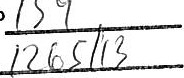 159
1265/13